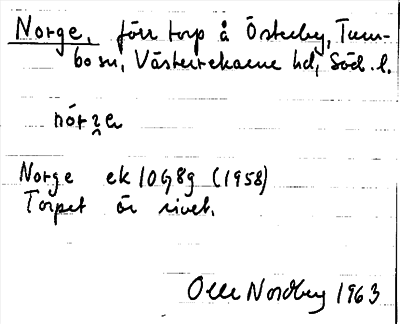 Norge, förr torp å Österby, Tum-
bo sn, Västerrekarne hd, Söd. l.
Norge ek 10G8g (1958)
Torpet är rivet.
Olle Nordberg 1963